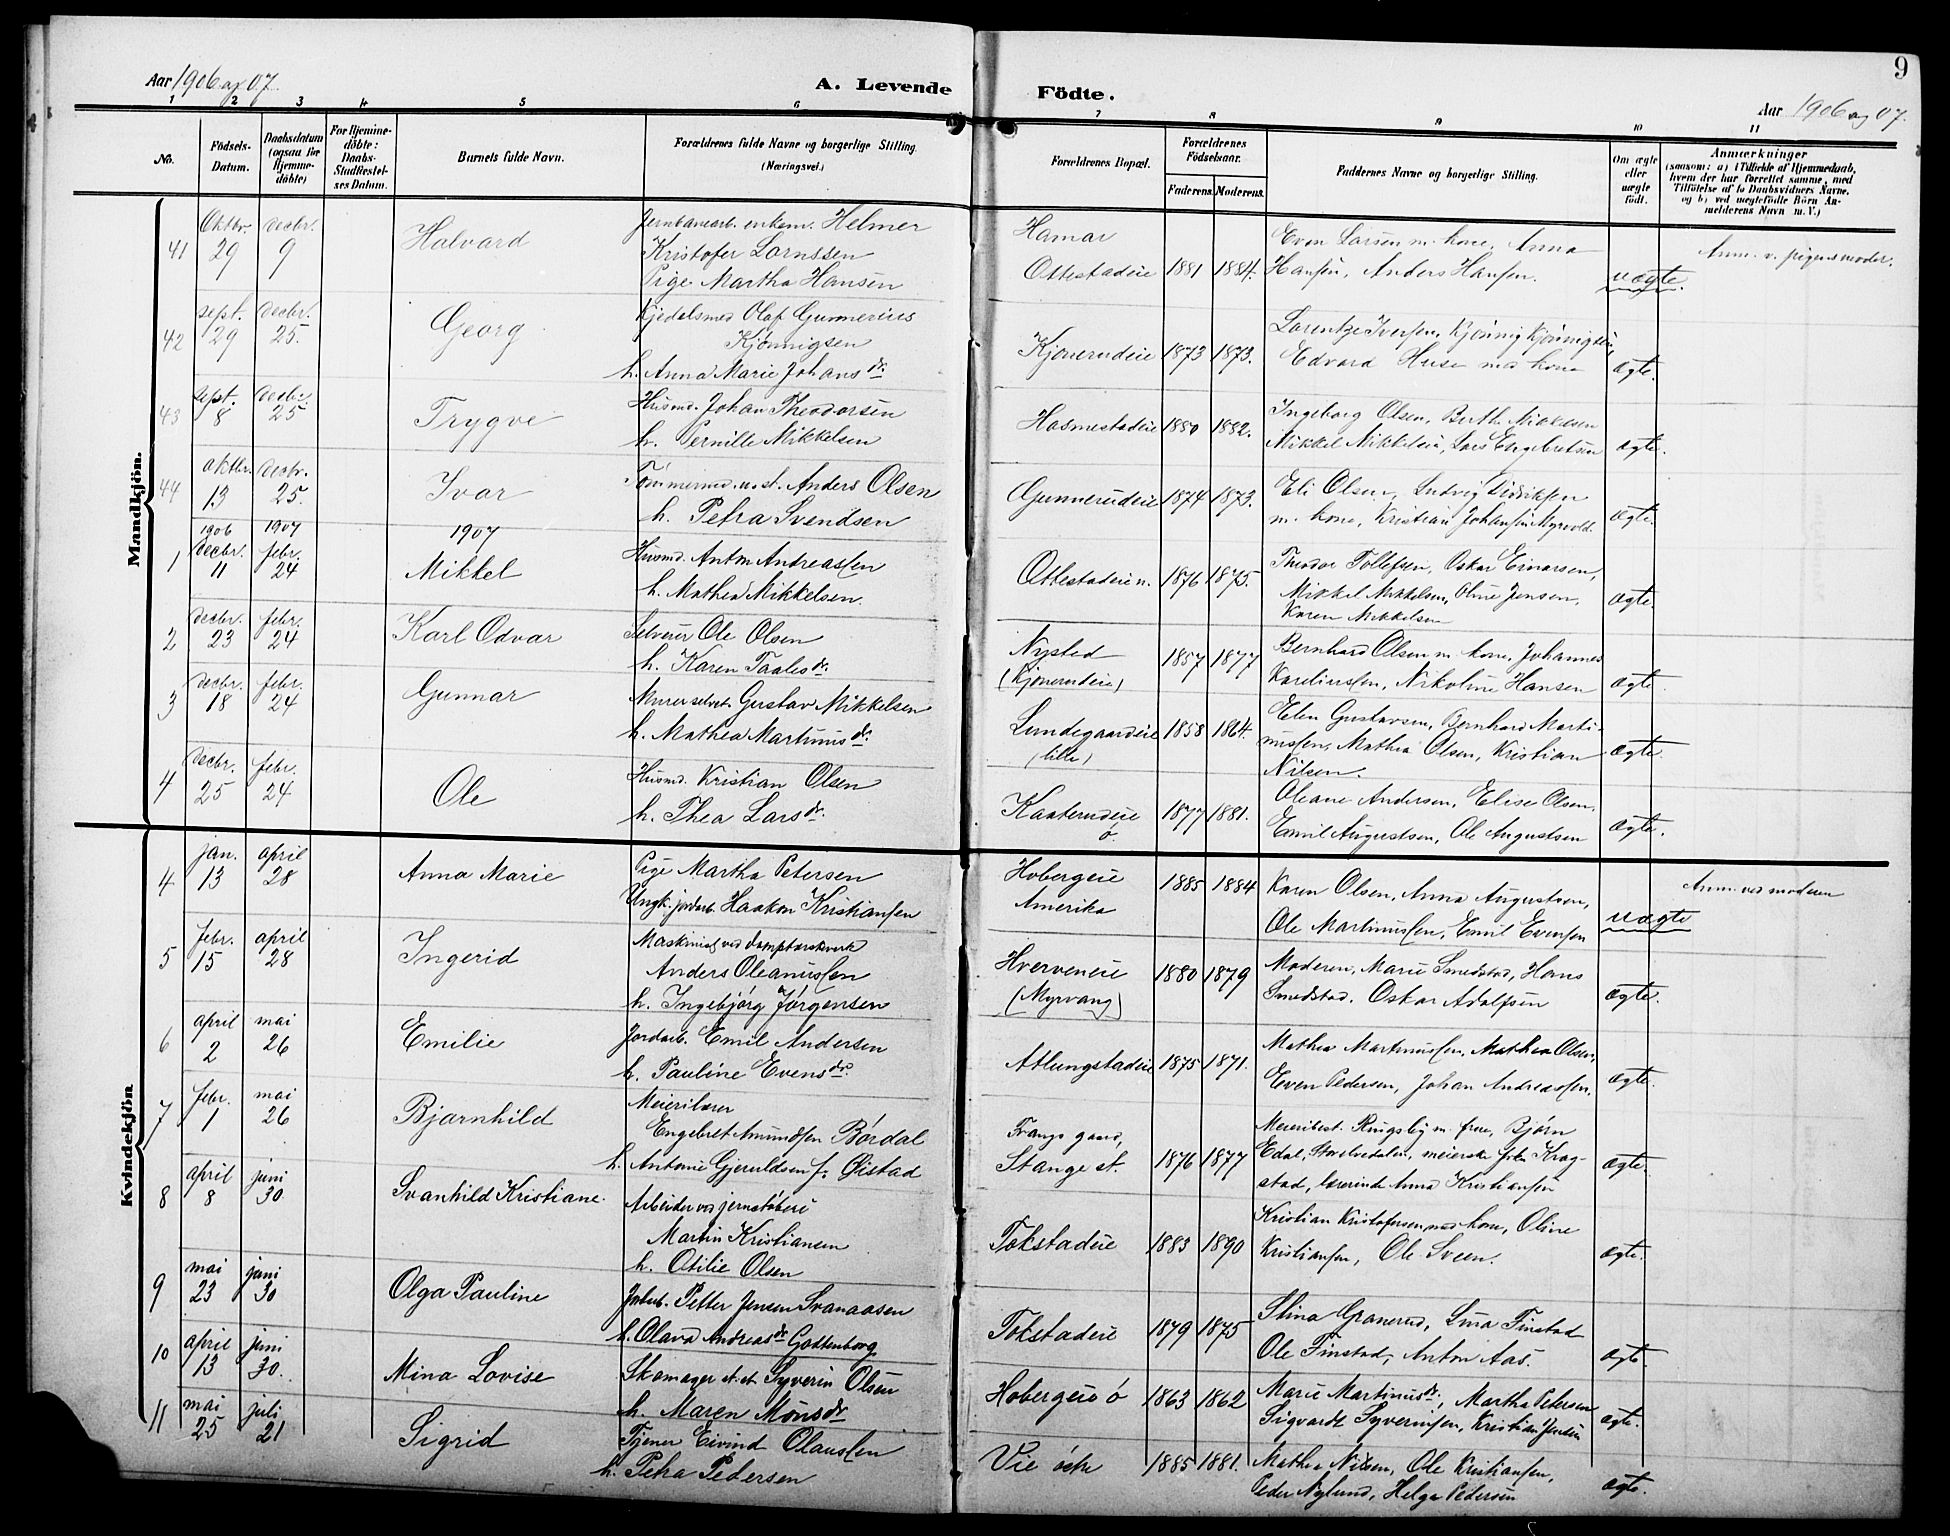 Aar 1906 og 07.
A. Levende Födte.
Aar 1906 og 07.
9
1 2 3 4 5 6 7 8 9 10 11
No.
Födsels-Datum.
Daabsdatum (ogsaa for Hjemme-döbte)
For Hjemme-döbte: Daabs-Stadfæstel-ses Datum.
Barnets fulde Navn.
Forældrenes fulde Navne og borgerlige Stilling. (Næringsvei.)
Forældrenes Bopæl.
Forældrenes Födselsaar.
Faderens. Moderens.
Faddernes Navne og borgerlige Stilling.
Om ægte eller uægte födt.
Anmærkninger
(saasom: a) i Tilfælde af Hjemmedaab, hvem der har forrettet samme, med Tilföielse af to Daabsvidners Navne, og b) ved uægtefödte Börn An-melderens Navn m. V.)
Mandkjön.
41 Oktbr. 29 Decbr. 9 Halvard
Jernbanearb. enkem. Helmer
Kristofer Larnssen
Pige Martha Hansen
Hamar
Ottestadeie 1881 1884.
Even Larsen m. kone, Anna
Hansen, Anders Hansen.
uægte.
Anm. v. pigens moder.
42 Sept. 29 Decbr. 25. Georg
Kjedelsmed Olaf Gunnerius
Kjönnigsen
h. Anna Marie Johans dr.
Kjonerudeie 1873 1873.
Lorentze Iversen, Kjönnig Kjönnigsen,
Edvard Huse med kone
ægte.
43 Sept. 8 Decbr. 25 Trygve
Husmd. Johan Theodorsen
h. Pernille Mikkelsen
Hosmestadeie 1880 1882.
Ingeborg Olsen, Berthe Mikkelsen
Mikkel Mikkelsen, Lars Engebretsen
ægte.
44 Oktbr. 13 Decbr. 25. Ivar
Tömmermd. u. st. Anders Olsen
h. Petra Svendsen
Gunnerudeie 1874 1873.
Eli Olsen, Ludvig Didriksen
m. kone, Kristian Johansen Myrvold.
ægte.
1906 1907 1907
1 Decbr. 11 febr. 24 Mikkel
Husmd. Anton Andreassen
h. Mathea Mikkelsen.
Ottestadeie n. 1876 1875.
Theodor Tollefsen, Oskar Einarsen,
Mikkel Mikkelsen, Oline Jensen,
Karen Mikkelsen
ægte.
2 Decbr. 23 febr. 24 Karl Odvar
Selveier Ole Olsen
h. Karen Paalsdr.
Nysted
(Kjonerudeie) 1857 1877
Bernhard Olsen m. kone, Johannes
Kareliussen, Nikoline Hansen
ægte.
3 Decbr. 18 febr. 24 Gunnar
Murer selvei. Gustav Mikkelsen
h. Mathea Martinus dr.
Lundegaardeie
(lille) 1858 1864.
Elen Gustavsen, Bernhard Marti-
nussen, Mathea Olsen, Kristian
Nilsen.
ægte.
4 Decbr. 25 febr. 24 Ole
Husmd. Kristian Olsen
h. Thea Larsdr.
Kaaterudeie
ö. 1877 1881.
Oleane Andersen, Elise Olsen,
Emil Augustsen, Ole Augustsen
ægte.
Kvindekjön
4 jan. 13 april 28 Anna Marie
Pige Martha Petersen
Ungk. jordarb. Haakon Kristiansen
Hobergeie
Amerika 1885 1884
Karen Olsen, Anna Augustsen,
Ole Martinussen, Emil Evensen
uægte
Anm. ved moderen
5 febr. 15 april 28 Ingerid
Maskinist ved damptærskverk
Anders Oleanussen
h. Ingebjörg Jörgensen
Hverveneie
(Myrvang) 1880 1879
Moderen, Marie Smedstad, Hans
Smedstad. Oskar Adolfsen
ægte.
6 april 2 mai 26 Emilie
Jordarb. Emil Andersen
h. Pauline Evensdr.
Atlungstadeie 1875 1871.
Mathea Martinussen, Mathea Olsen,
Even Pedersen, Johan Andreassen.
ægte.
7 febr. 1 mai 26 Bjarnhild
Meierilærer
Engebret Amundsen Bórdal
h. Antonie Gjeruldsen f. Öistad
Frangs gaard,
Stange st. 1876 1877
Meieribest. Ringsby m. frue, Björn
Edal, meierske Krog-
stad, lærerinde Anna Kristiansen
ægte.
8 april 8 juni 30 Svanhild Kristiane.
Arbeider ved jernstöberi
Martin Kristiansen
h. Otilie Olsen
Tokstadeie 1883 1890
Kristian Kristofersen med kone, Oline
Kristiansen, Ole Sveen.
ægte.
9 mai 23 juni 30 Olga Pauline
Jordarb. Petter Jensen Svanaasen
h. Olava Andreasdr Gottenborg
Tokstadeie 1879 1875
Stina Granerud, Lina Finstad
Ole Finstad, Anton Aas.
ægte.
10 april 13 juni 30. Mina Lovise
Skomager Syverin Olsen
h. Maren Mónsdr
Hobergeie ö 1863 1862
Marie Martinusdr., Martha Petersen
Sigvardt Syverinsen, Kristian Jensen
ægte.
11 mai 25 juli 21 Sigrid
Tjener Eivind Olaussen
h. Petra Pedersen
Vie östre 1885 1881.
Mathea Nilsen, Ole Kristiansen,
Peder Nylund, Helga Pedersen
ægte.